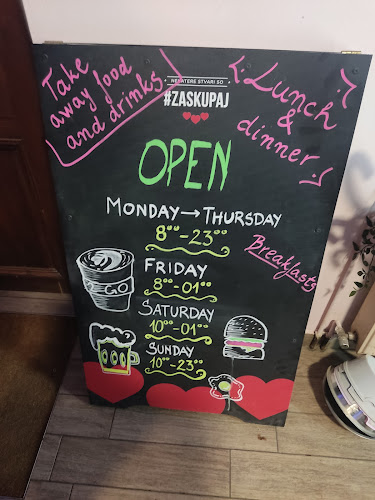 Take
away food
and drinks
NEKATERE STVARI SO
#ZASKUPAJ
Lunch
&
dinner
OPEN
MONDAY → THURSDAY
8°° - 23°°
Breakfasts
FRIDAY
8°° - 01°°
SATURDAY
10°° - 01°°
SUNDAY
10°° - 23°°
GO